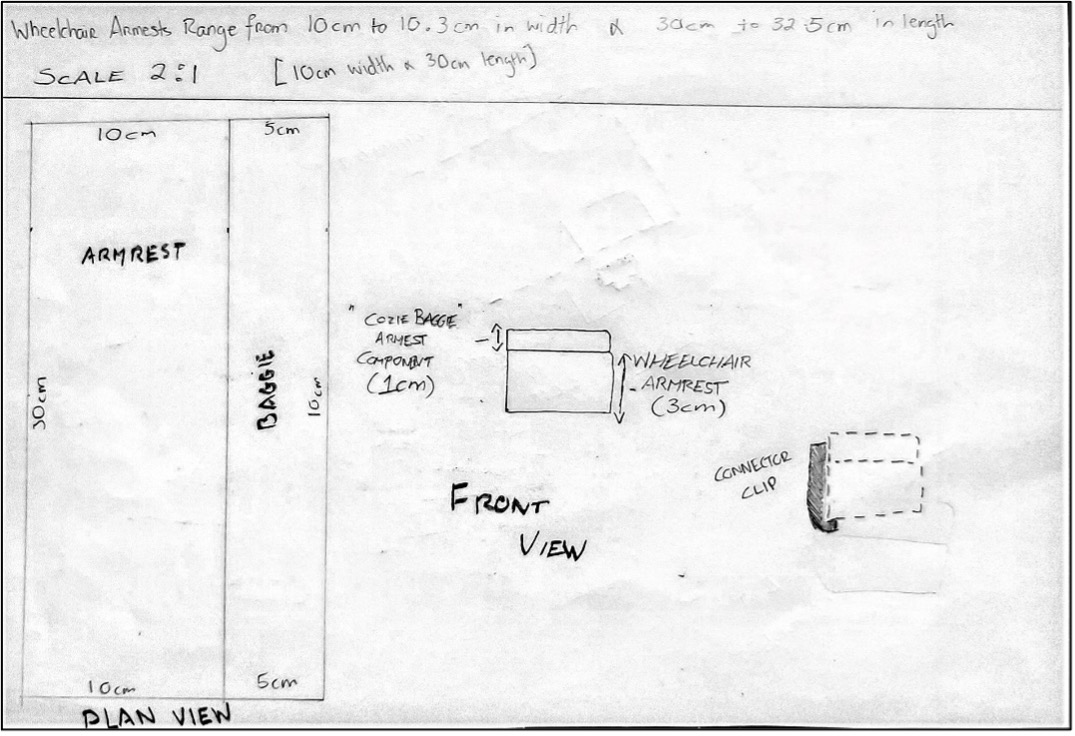 Wheelchair Armests Range from 10cm to 10.3cm in width & 30cm to 32.5cm in length
SCALE 2:1 [10cm width & 30cm length]
10cm
5cm
ARMREST
30cm
BAGGIE
10cm
10cm
5cm
PLAN VIEW
"COZIE BAGGIE"
ARMEST
COMPONENT
(1cm)
WHEELCHAIR
ARMREST
(3cm)
FRONT
VIEW
CONNECTOR
CLIP